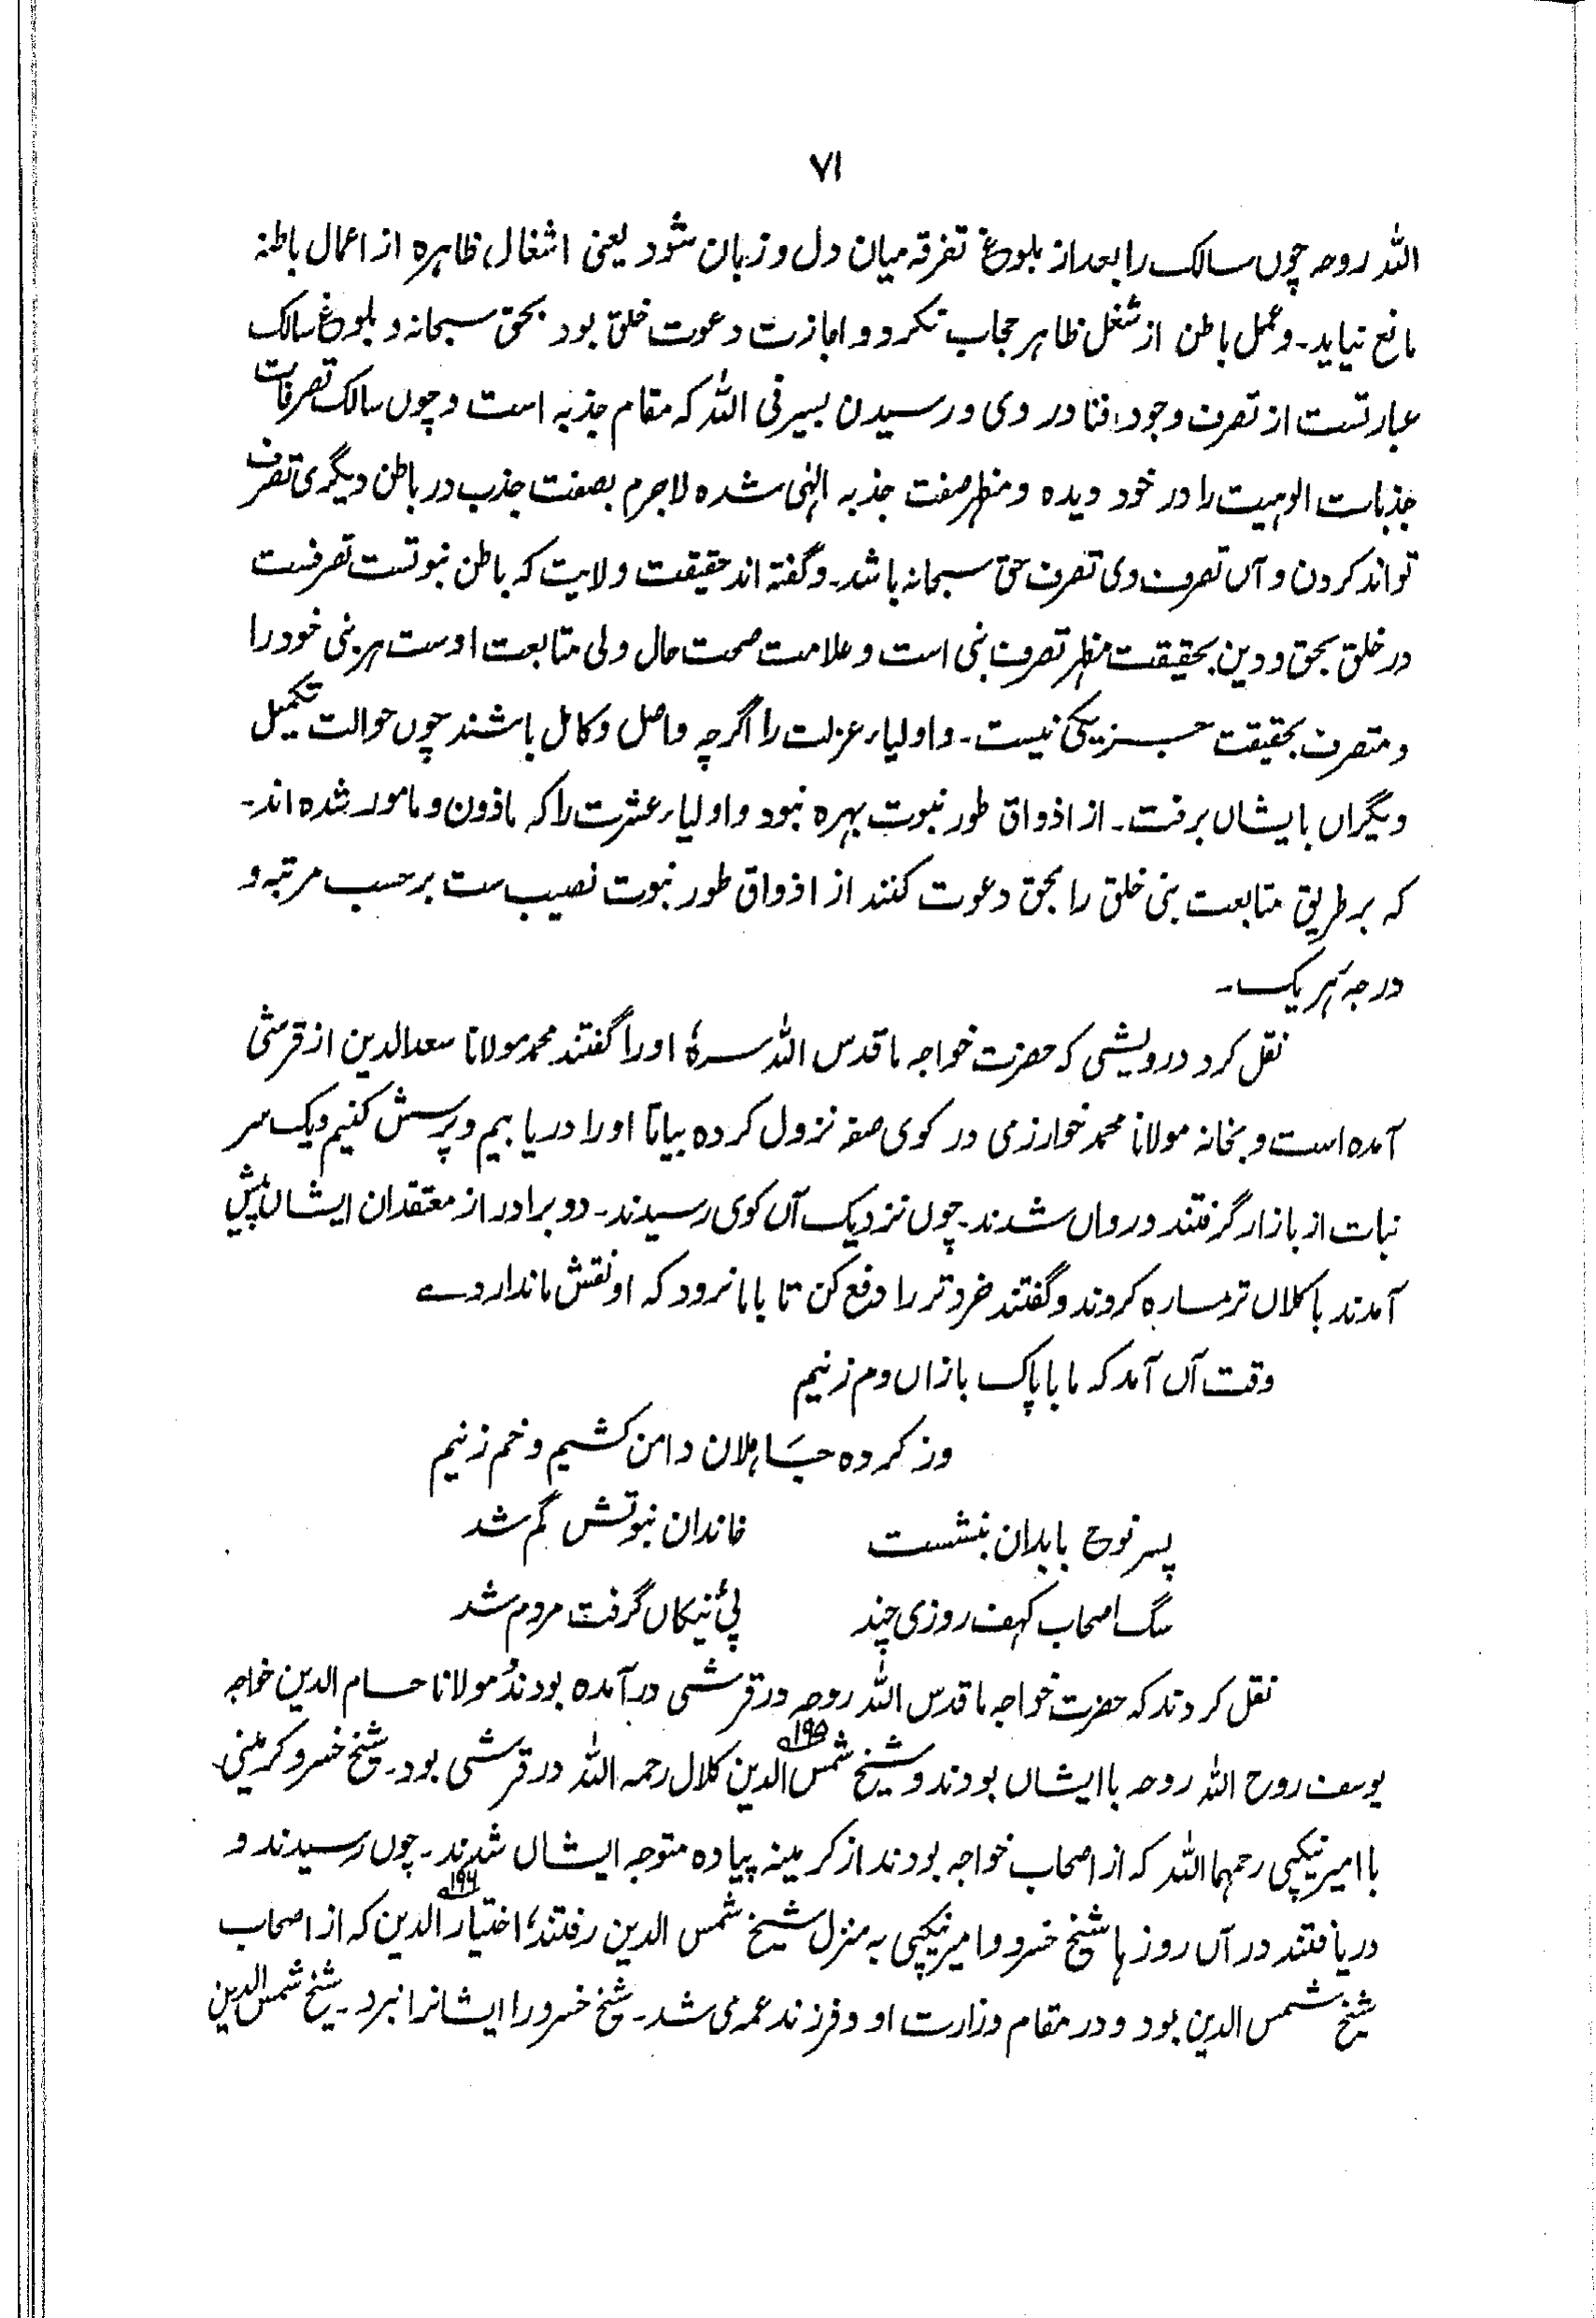 ۷۱
اللہ روحہ چوں سالک را بعد از بلوغ تفرقہ میان دل و زبان شود یعنی اشغال ظاہرہ از اعمال باطنہ
مانع نیاید۔ و عمل باطن از شغل ظاہر حجاب نکرد و اجازت دعوت خلق بود بحق سبحانہ و بلوغ سالک
عبارتست از تصرف وجود فنا در وی و رسیدن بسیر فی اللہ کہ مقام جذبہ است و چوں سالک تصرفات
جذبات الوہیت را در خود دیدہ و مظہر صفت جذبہ الہٰی شدہ لاجرم بصفت جذب در باطن دیگری تصرف
تواند کردن و آں تصرف وی تصرف حق سبحانہ باشد۔ و گفتہ اند حقیقت ولایت کہ باطن نبوتست تصرفست
در خلق بحق و دین بحقیقت مظہر تصرف نبی است و علامت صحت حال ولی متابعت اوست ہر نبی خود را
و متصرف بحقیقت جز یکی نیست۔ و اولیاء عزلت را اگرچہ واصل و کامل باشند چوں حوالت تکمیل
دیگراں بایشاں برفت۔ از اذواق طور نبوت بہرہ نبود و اولیاء عشرت را کہ ماذون و مامور شدہ اند۔
کہ بر طریق متابعت نبی خلق را بحق دعوت کنند از اذواق طور نبوت نصیب ست برحسب مرتبہ و
درجہ ہر یک۔
نقل کرد درویشی کہ حضرت خواجہ ما قدس اللہ سرہٗ او را گفتند محمد مولانا سعد الدین از قرشی
آمدہ است و بخانہ مولانا محمد خوارزمی در کوی صفہ نزول کردہ بیا تا او را دریابیم و پرسش کنیم و یک سر
نبات از بازار گرفتند و رواں شدند۔ چوں نزدیک آں کوی رسیدند۔ دو برادر از معتقدان ایشاں پیش
آمدند با کلاں تر مسارہ کردند و گفتند خردتر را دفع کن تا با ما نرود کہ او نقش ما ندارد ے
وقت آں آمد کہ ما با پاک بازاں دم زنیم
وز کردہ جاہلان دامن کشیم و خم زنیم
پسر نوح با بدان بنشست خاندان نبوتش گم شد
سگ اصحاب کہف روزی چند پیٔ نیکاں گرفت مردم شد
نقل کردند کہ حضرت خواجہ ما قدس اللہ روحہ در قرشی در آمدہ بودند مولانا حسام الدین خواجہ
یوسف روح اللہ روحہ با ایشاں بودند و شیخ شمس الدین ۱۹۵ کلال رحمہ اللہ در قرشی بود۔ شیخ خسرو کرمینی
با امیر نیکپی رحمہما اللہ کہ از اصحاب خواجہ بودند از کرمینہ پیادہ متوجہ ایشاں شدند۔ چوں رسیدند و
دریافتند در آں روزہا شیخ خسرو و امیر نیکپی بہ منزل شیخ شمس الدین رفتند؛ اختیار الدین ۱۹۶ کہ از اصحاب
شیخ شمس الدین بود و در مقام وزارت او و فرزند عمدی شد۔ شیخ خسرو را ایشانرا نبرد۔ شیخ شمس الدین